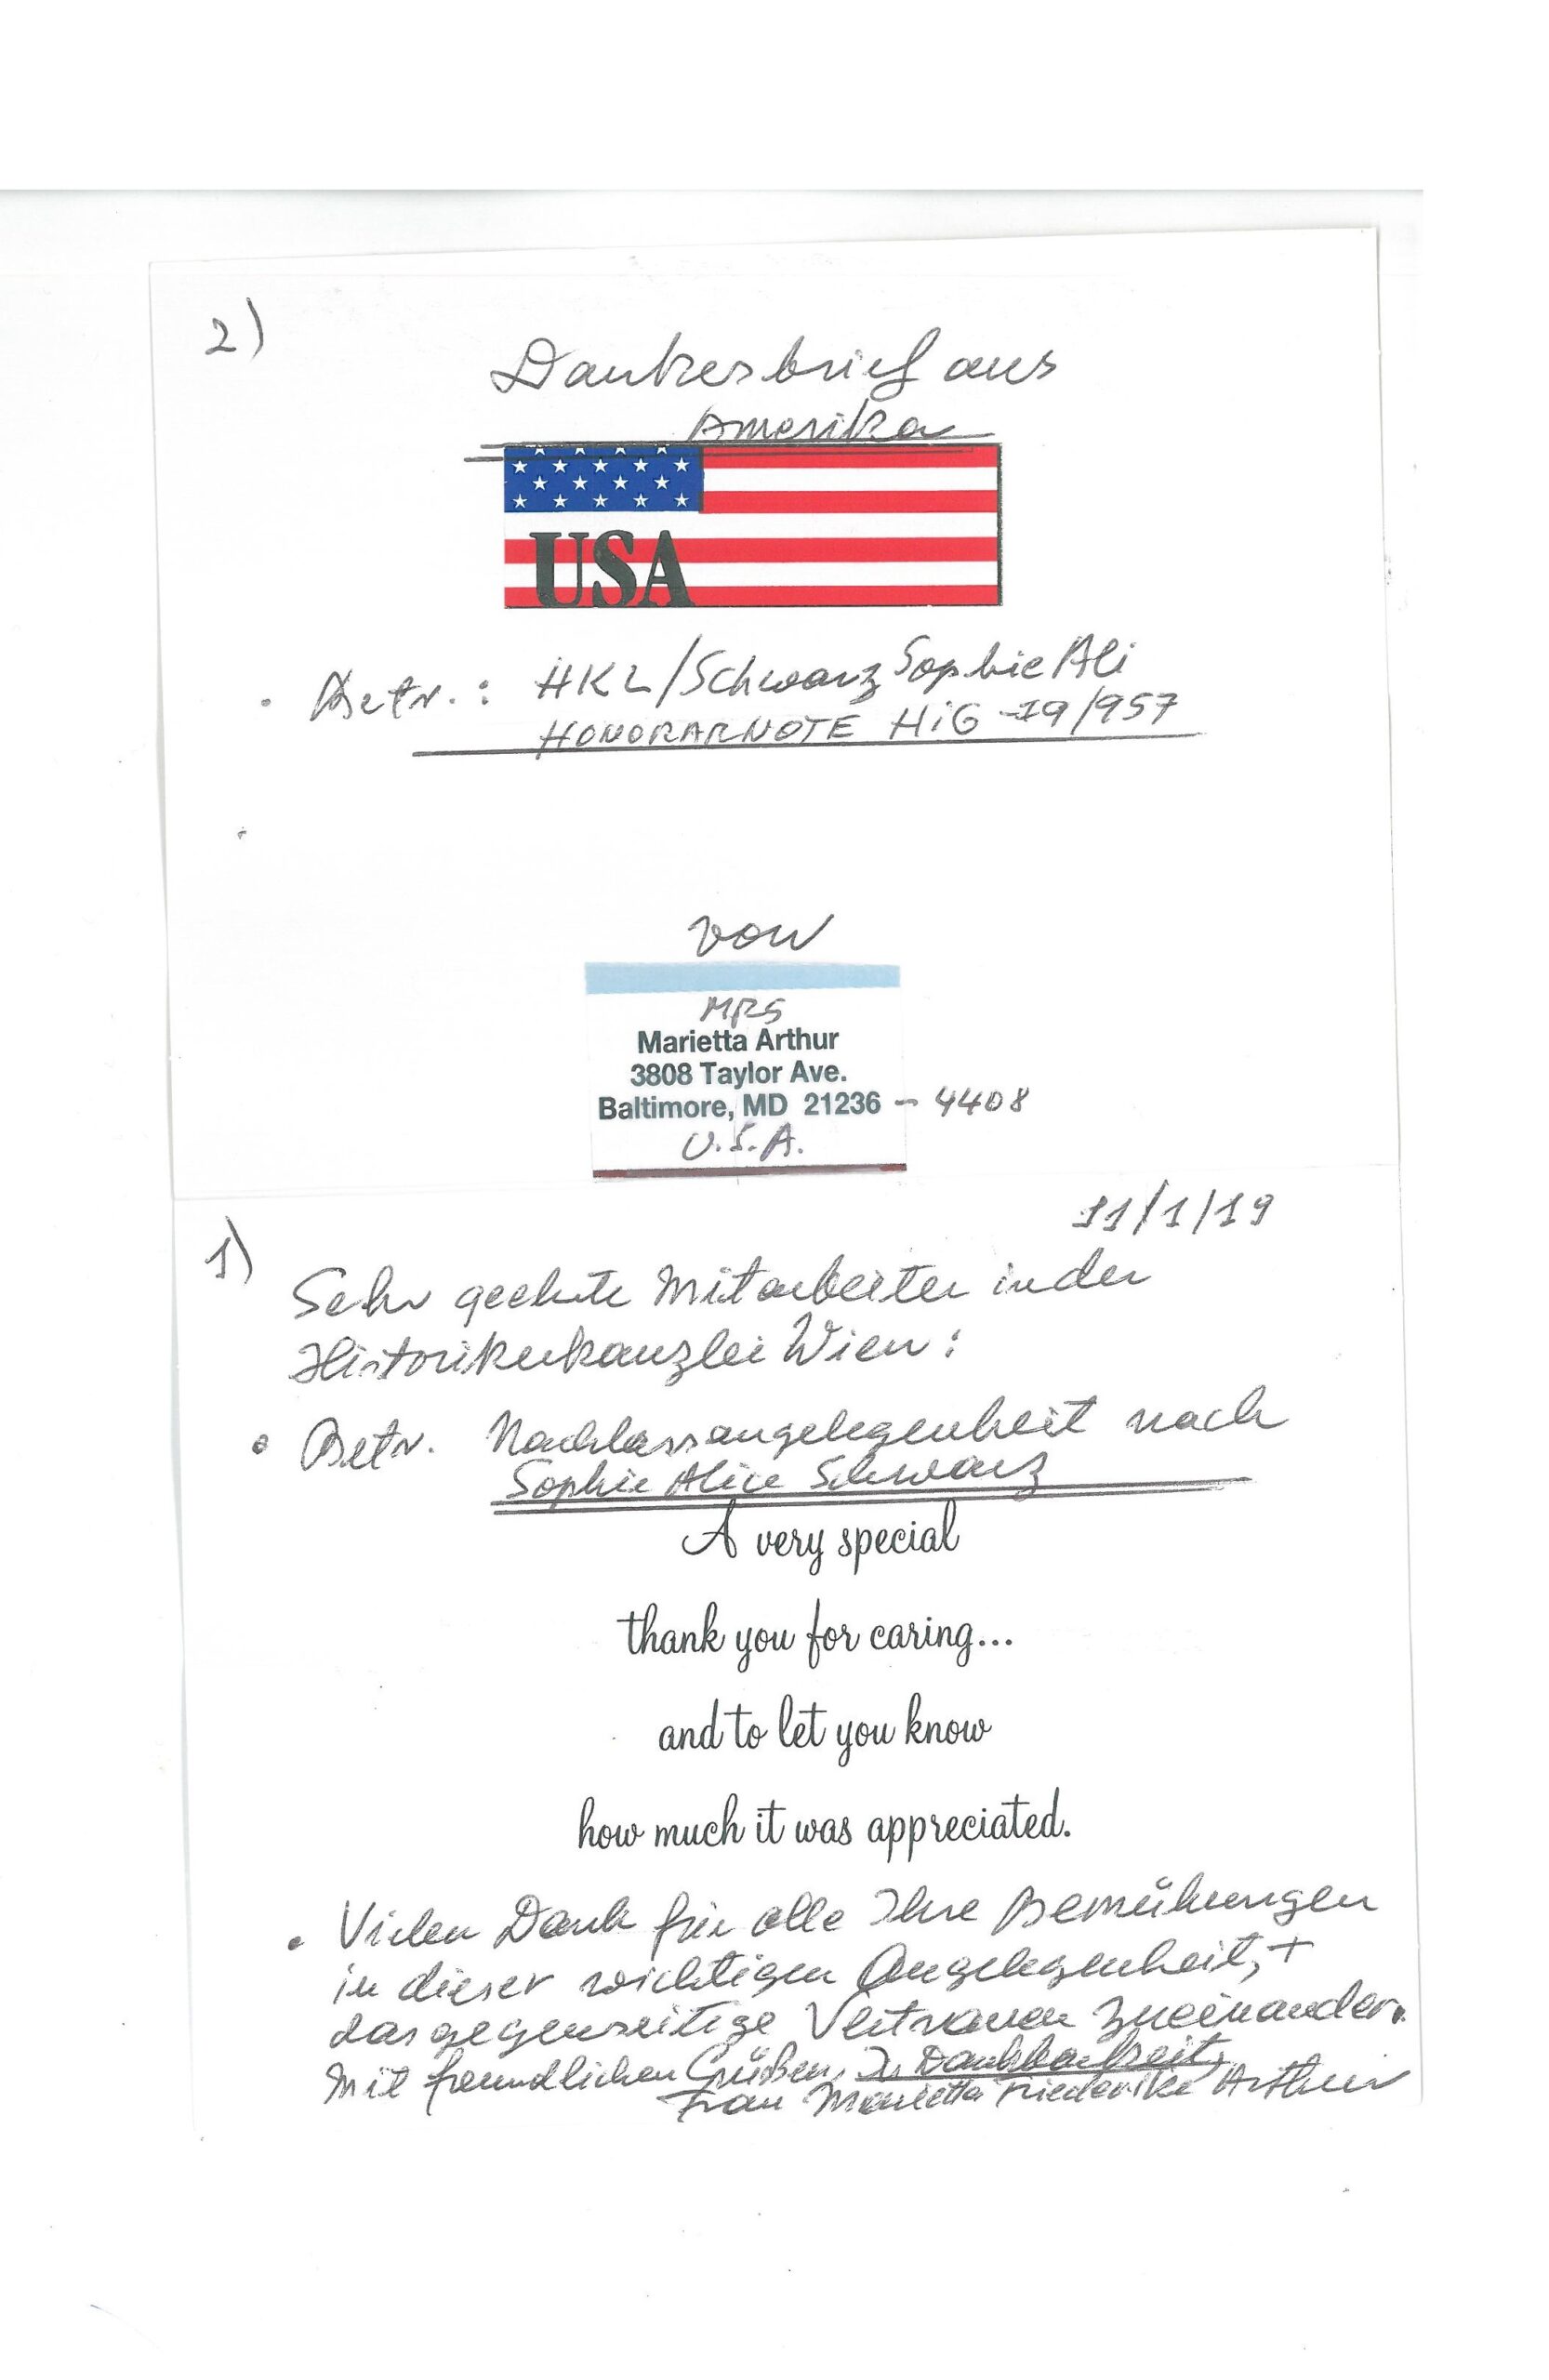 2)
Dankesbrief aus
Amerika
USA
• Betr.: HKL/Schwarz Sophie Ali
HONORARNOTE HiG-19/957
von
MRS
Marietta Arthur
3808 Taylor Ave.
Baltimore, MD 21236 - 4408
U.S.A.
11/1/19
1)
Sehr geehrte Mitarbeiter in der
Historikerkanzlei Wien:
• Betr. Nachlassangelegenheit nach
Sophie Alice Schwarz
A very special
thank you for caring...
and to let you know
how much it was appreciated.
• Vielen Dank für alle Ihre Bemühungen
in dieser wichtigen Angelegenheit, +
das gegenseitige Vertrauen zueinander.
Mit freundlichen Grüßen, In Dankbarkeit,
Frau Marietta Friederike Arthur